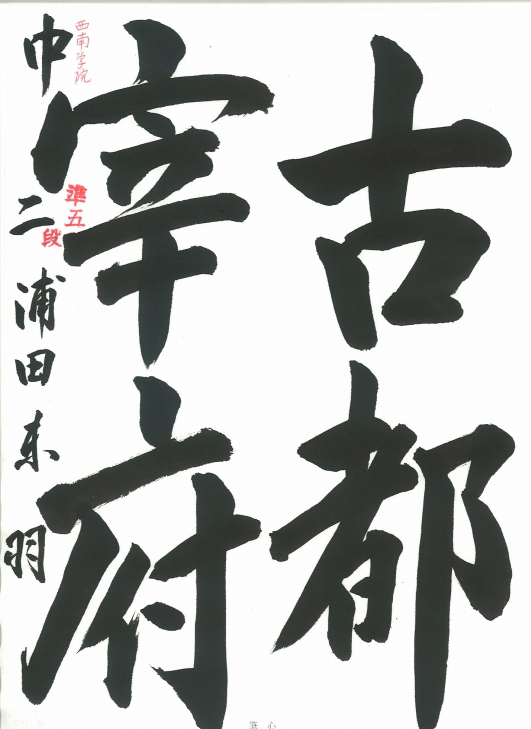 古都
宰府
西南学院
中二 浦田東羽
準五段